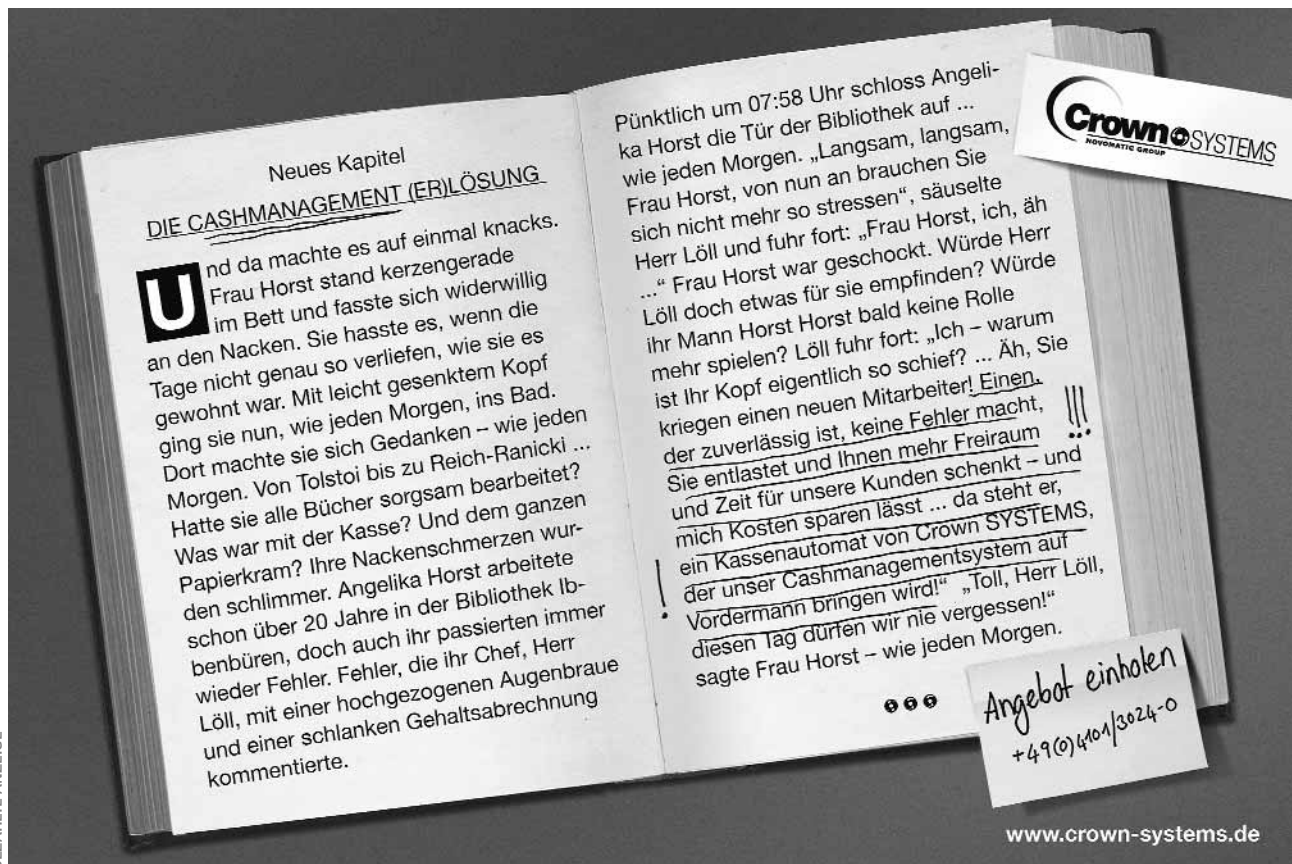 Neues Kapitel
DIE CASHMANAGEMENT (ER)LÖSUNG
Und da machte es auf einmal knacks.
Frau Horst stand kerzengerade
im Bett und fasste sich widerwillig
an den Nacken. Sie hasste es, wenn die
Tage nicht genau so verliefen, wie sie es
gewohnt war. Mit leicht gesenktem Kopf
ging sie nun, wie jeden Morgen, ins Bad.
Dort machte sie sich Gedanken – wie jeden
Morgen. Von Tolstoi bis zu Reich-Ranicki ...
Hatte sie alle Bücher sorgsam bearbeitet?
Was war mit der Kasse? Und dem ganzen
Papierkram? Ihre Nackenschmerzen wur-
den schlimmer. Angelika Horst arbeitete
schon über 20 Jahre in der Bibliothek Ib-
benbüren, doch auch ihr passierten immer
wieder Fehler. Fehler, die ihr Chef, Herr
Löll, mit einer hochgezogenen Augenbraue
und einer schlanken Gehaltsabrechnung
kommentierte.
Pünktlich um 07:58 Uhr schloss Angeli-
ka Horst die Tür der Bibliothek auf ...
wie jeden Morgen. „Langsam, langsam,
Frau Horst, von nun an brauchen Sie
sich nicht mehr so stressen“, säuselte
Herr Löll und fuhr fort: „Frau Horst, ich, äh
...“ Frau Horst war geschockt. Würde Herr
Löll doch etwas für sie empfinden? Würde
ihr Mann Horst Horst bald keine Rolle
mehr spielen? Löll fuhr fort: „Ich – warum
ist Ihr Kopf eigentlich so schief? ... Äh, Sie
kriegen einen neuen Mitarbeiter! Einen,
der zuverlässig ist, keine Fehler macht,
Sie entlastet und Ihnen mehr Freiraum
und Zeit für unsere Kunden schenkt – und
mich Kosten sparen lässt ... da steht er,
ein Kassenautomat von Crown SYSTEMS,
der unser Cashmanagementsystem auf
Vordermann bringen wird!“ „Toll, Herr Löll,
diesen Tag dürfen wir nie vergessen!“
sagte Frau Horst – wie jeden Morgen.
!!!
!
Crown SYSTEMS
NOVOMATIC GROUP
Angebot einholen
+49(0)4101/3024-0
www.crown-systems.de